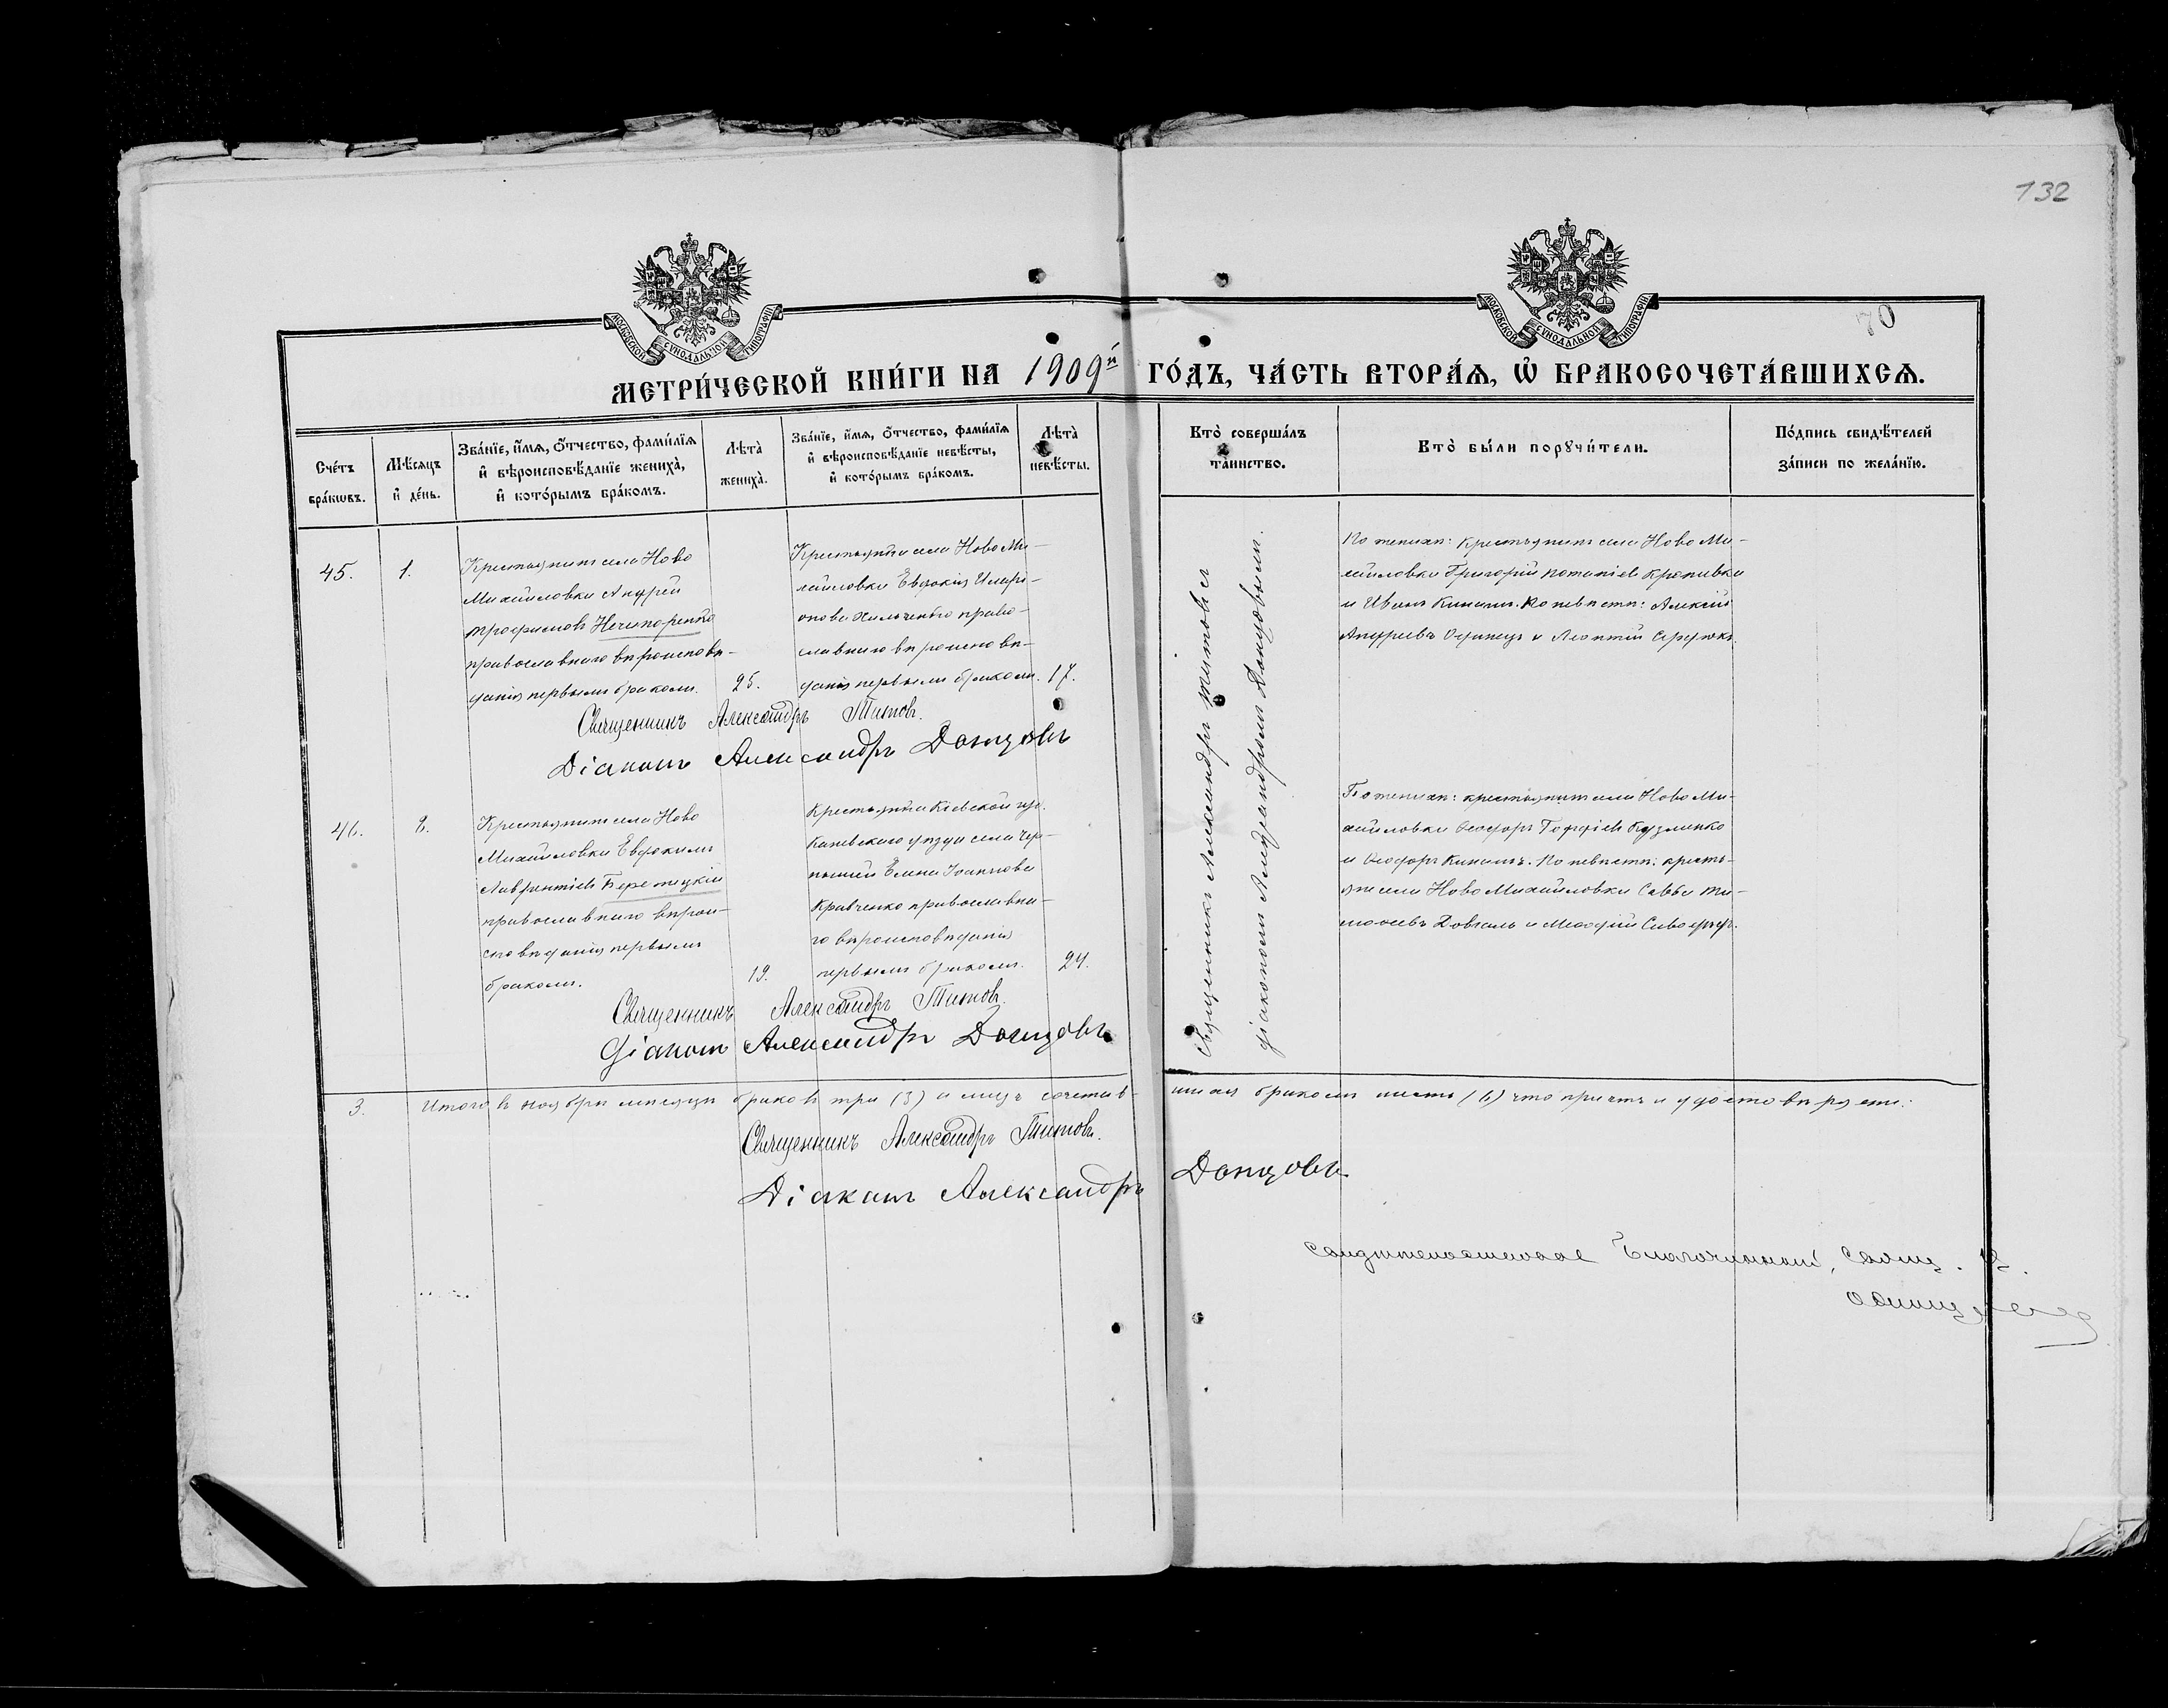 132
70
МОСКОВСКОЙ СУНОДАЛЬНОЙ ТИПОГРАФІИ
МОСКОВСКОЙ СУНОДАЛЬНОЙ ТИПОГРАФІИ
МЕТРИ́ЧЕСКОЙ КНИ́ГИ НА 1909й ГО́ДЪ, ЧА́СТЬ ВТОРА́Я, Ѡ БРАКОСОЧЕТА́ВШИХСЯ.
Сче́тъ
бра́кѡвъ.
Мѣ́сяцъ
и҆ де́нь.
Зва́нїе, и҆́мя, ѻ҆́тчество, фами́лїя
и҆ вѣроисповѣ́данїе жениха̀,
и҆ кото́рымъ бра́комъ.
Лѣта̀
жениха̀.
Зва́нїе, и҆́мя, ѻ҆́тчество, фами́лїя
и҆ вѣроисповѣ́данїе невѣ́сты,
и҆ кото́рымъ бра́комъ.
Лѣта̀
невѣ́сты.
Кто̀ соверша́лъ
та́инство.
Кто̀ бы́ли порꙋчи́тели.
По́дпись свидѣ́телей
за́писи по жела́нїю.
45.
1.
Крестьянинъ села Ново
Михайловки Андрей
Трофимовъ Нечипоренко
православнаго вѣроисповѣ-
данія первымъ бракомъ.
25.
Крестьянка села Ново Ми-
хайловки Евдокія Иларі-
онова Хильченко право-
славнаго вѣроисповѣ-
данія первымъ бракомъ.
17.
Священникъ Александръ Титовъ.
Діаконъ Александръ Донцовъ
По женихѣ: крестьянинъ села Ново Ми-
хайловки Григорій Потаніевъ Кропивка
и Иванъ Кикоть. По невѣстѣ: Алексій
Андреевъ Одинецъ и Леонтій Сердюкъ.
Священникъ Александръ Титовъ съ
діакономъ Александромъ Донцовымъ.
46.
8.
Крестьянинъ села Ново
Михайловки Евдокимъ
Лаврентіевъ Бережецкій
православнаго вѣрои-
сповѣданія первымъ
бракомъ.
19.
Крестьянка Кіевской гу.
Каневскаго уѣзда села Чер-
нышей Елена Іоаннова
Кравченко православна-
го вѣроисповѣданія
первымъ бракомъ.
24.
Священникъ Александръ Титовъ.
Діаконъ Александръ Донцовъ
По женихѣ: крестьянинъ села Ново Ми-
хайловки Ѳеодоръ Кузменко
и Ѳеодоръ Кикоть. По невѣстѣ: кресть-
яне села Ново Михайловки Савва Ти-
моѳеевъ Довгаль и Меѳодій
3.
Итого въ ноябрѣ мѣсяцѣ браковъ три (3) и лицъ сочетав-
шихся бракомъ шесть (6) что причтъ и удостовѣряетъ:
Священникъ Александръ Титовъ.
Діаконъ Александръ Донцовъ
Благочинный, Свящ.